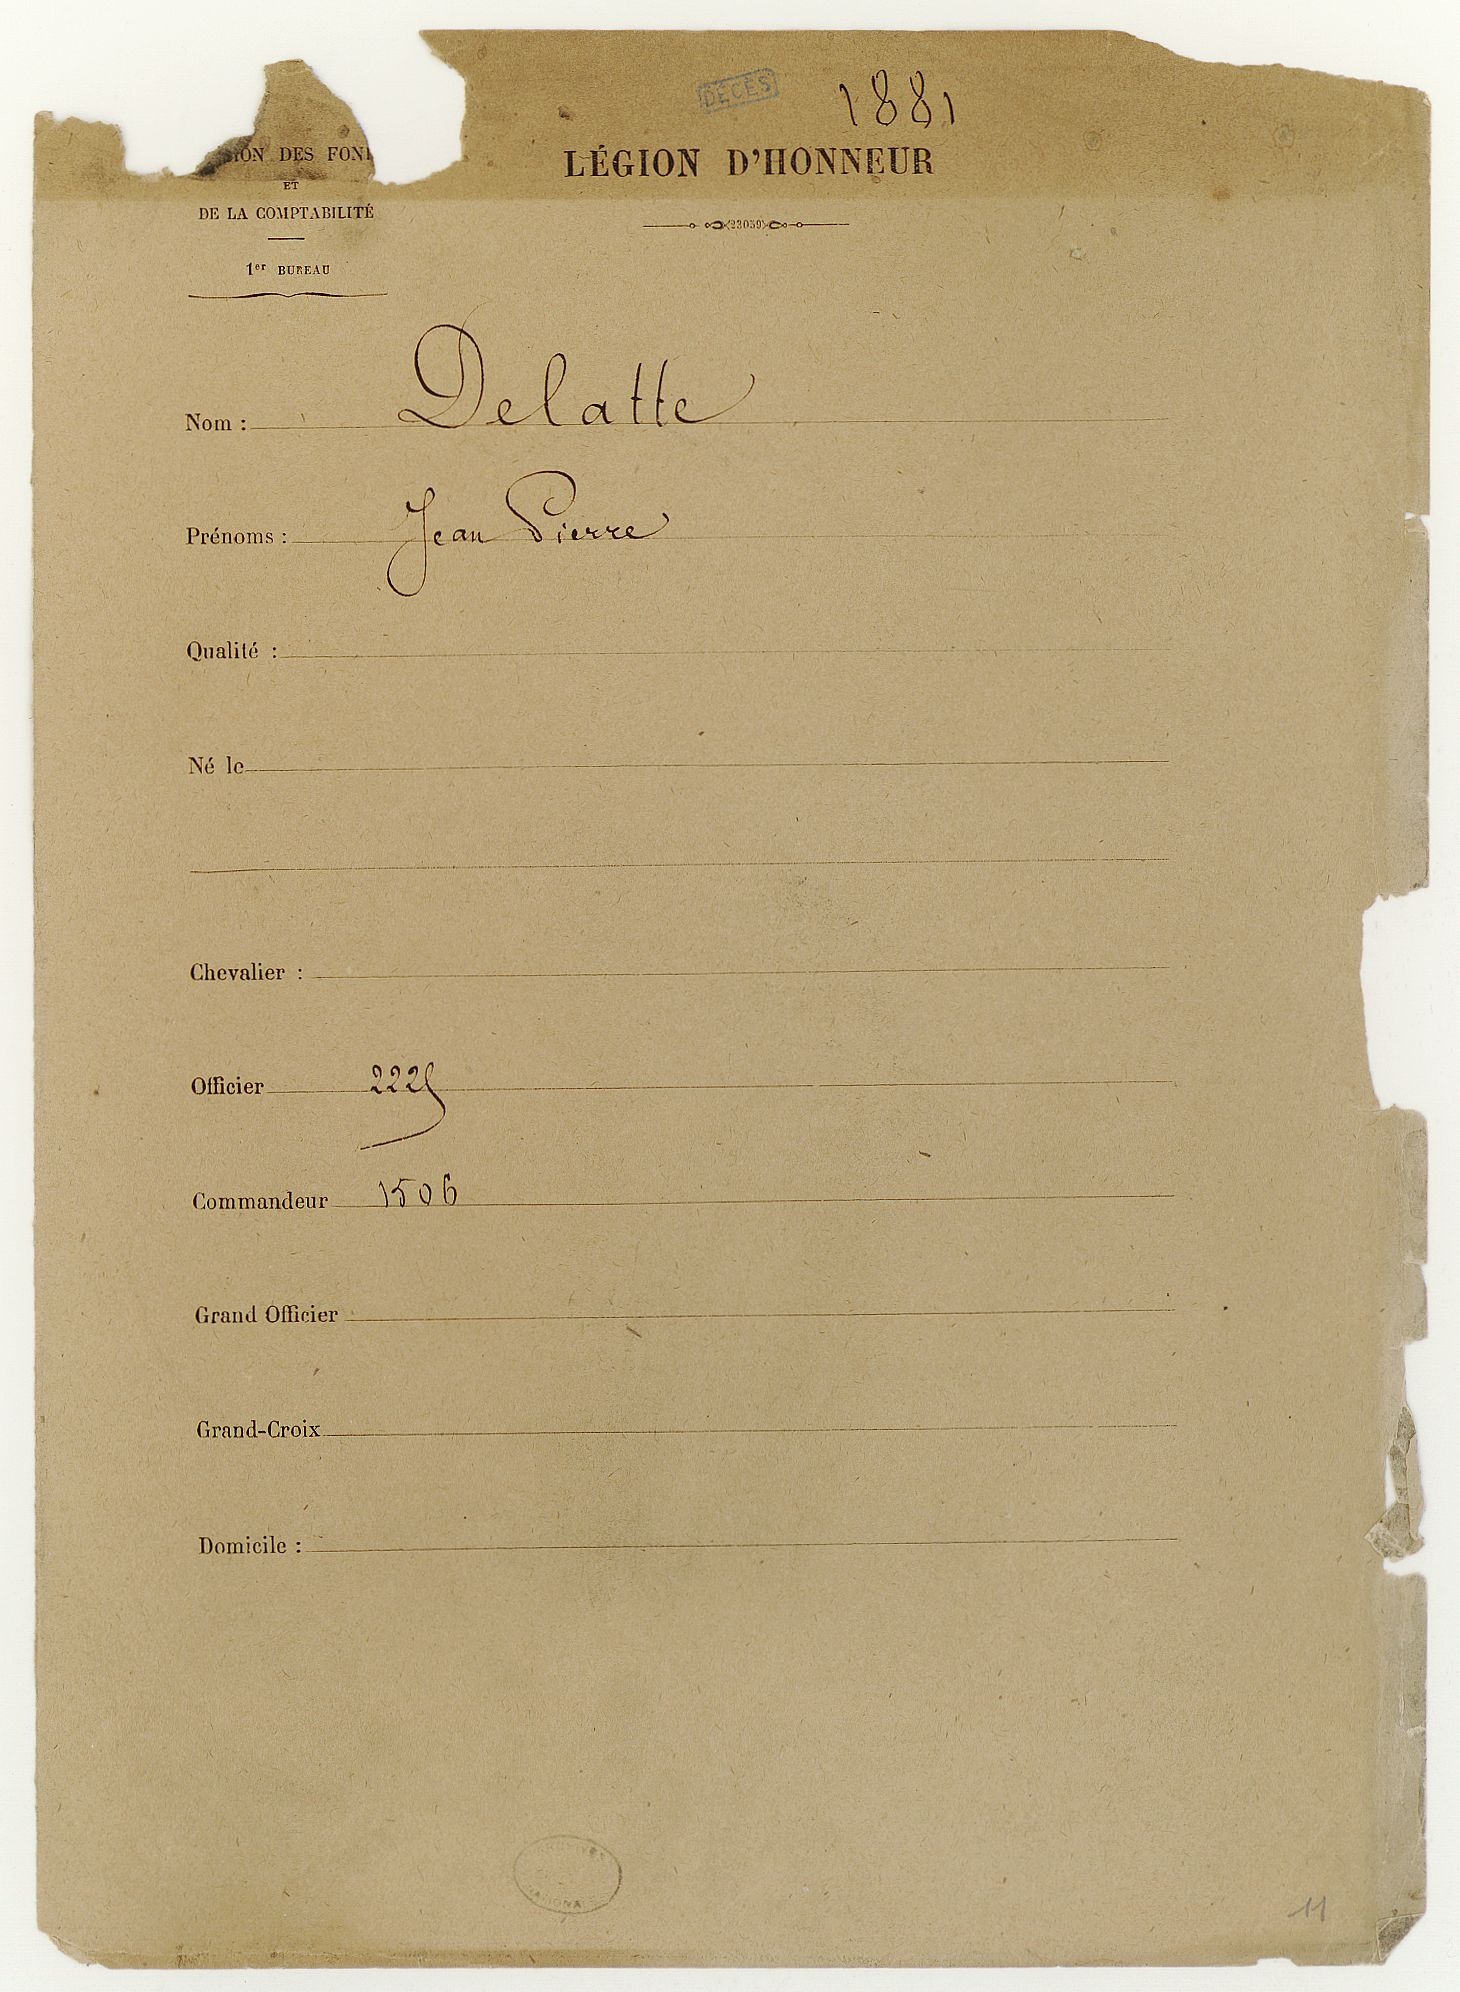 DÉCÈS
1881
ION DES FON
ET
DE LA COMPTABILITÉ
1er BUREAU
LÉGION D'HONNEUR
(23059)
Nom : Delatte
Prénoms : Jean Pierre
Qualité :
Né le
Chevalier :
Officier 2225
Commandeur 1506
Grand Officier
Grand-Croix
Domicile :
11